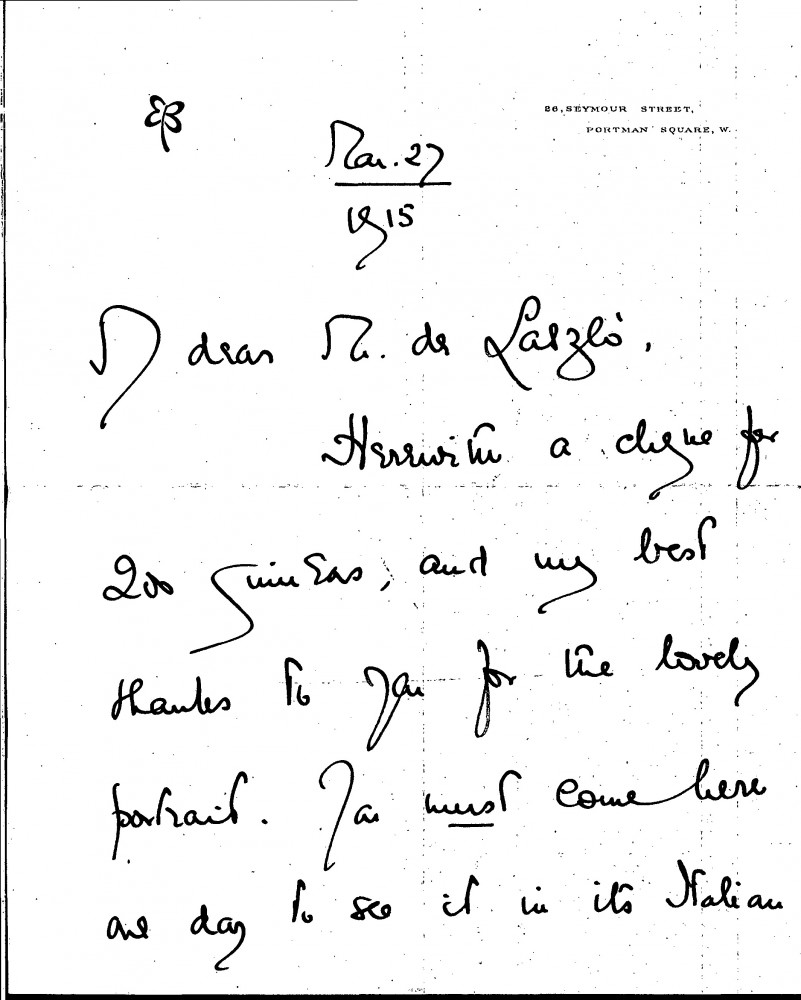 26, SEYMOUR STREET,
PORTMAN SQUARE, W.
Mar. 27
1915
My dear Mr. de László,
Herewith a cheque for
200 guineas, and my best
thanks to you for the lovely
portrait. You must come here
one day to see it in its Italian